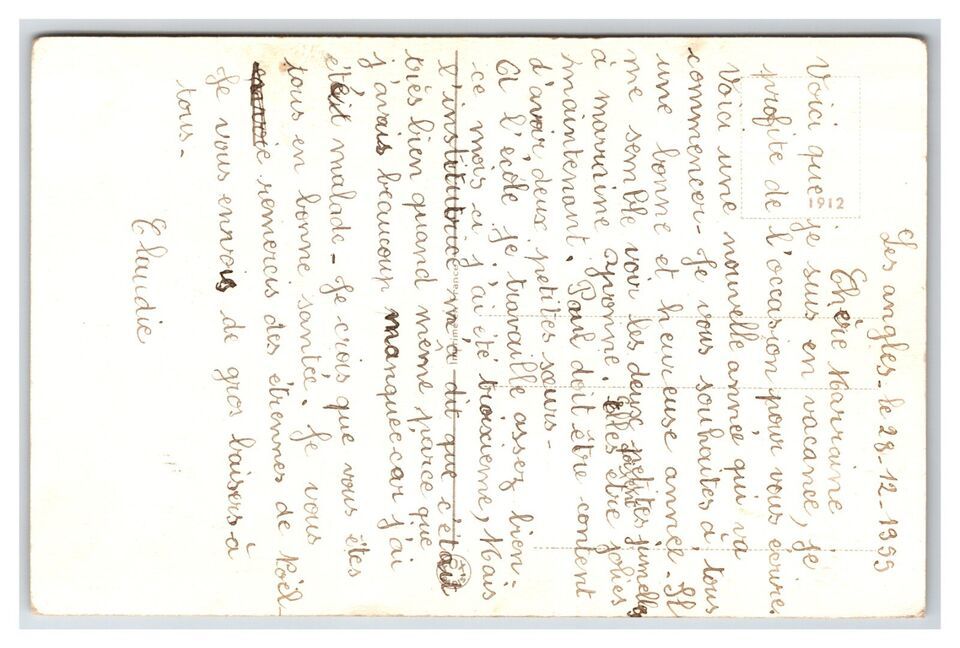 Les angles - le 28-12-1959
Chère Marraine
Voici que je suis en vacance, je
profite de l'occasion pour vous écrire.
Voici une nouvelle année qui va
commencer - Je vous souhaites à tous
une bonne et heureuse année - Il
me semble voir les deux petites jumelles
à marraine Yvonne. elles doivent être jolies
maintenant. Paul doit être content
d'avoir deux petites sœurs -
A l'école je travaille assez bien -
ce mois ci j'ai été troixième, Mais
l'institutrice m'a dit que c'était
très bien quand même parce que
j'avais beaucoup manquée car j'ai
étéit malade - Je crois que vous êtes
tous en bonne santée. Je vous
remercis des étrennes de Noël -
Je vous envois de gros baisers à
tous -
Claudie
1912